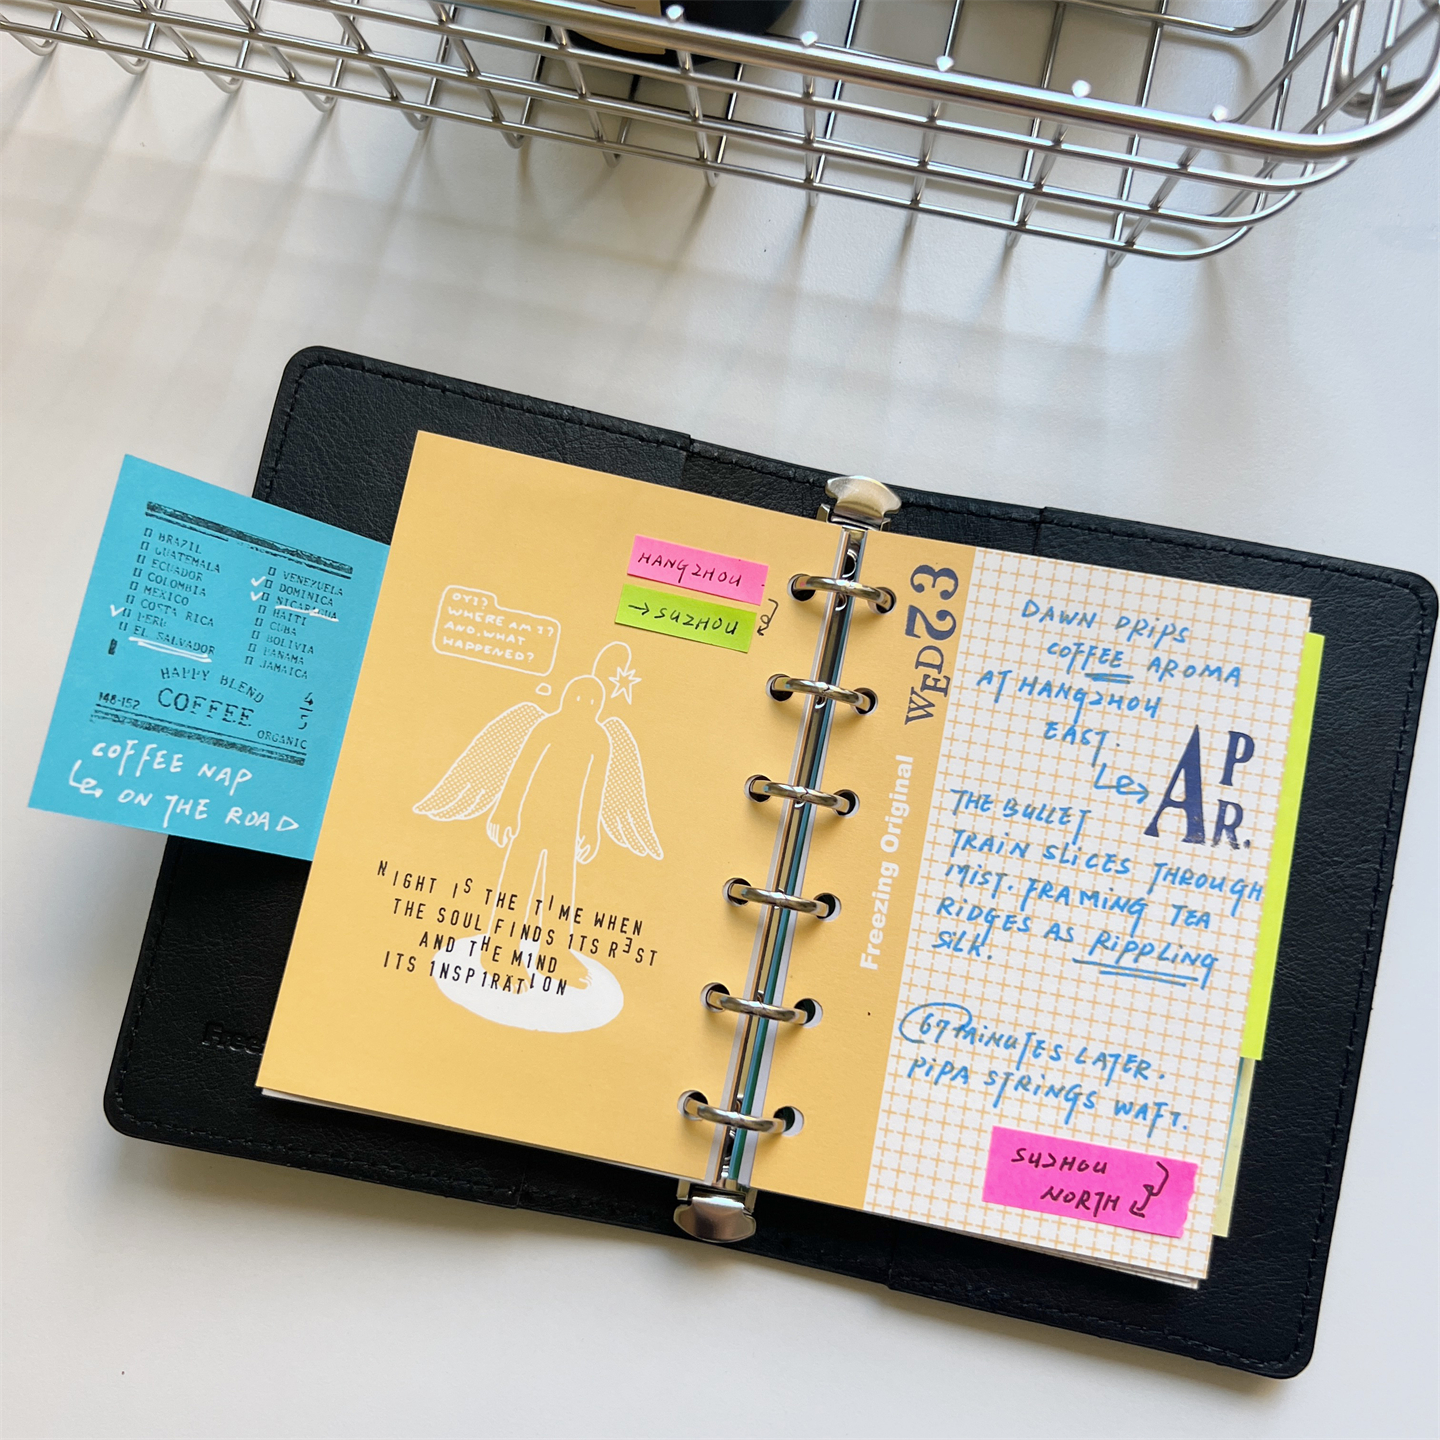 BRAZIL
GUATEMALA
ECUADOR
COLOMBIA
MEXICO
COSTA RICA
PERU
EL SALVADOR
VENEZUELA
DOMINICA
NICARAGUA
HAITI
CUBA
BOLIVIA
PANAMA
JAMAICA
HAPPY BLEND
148-152 COFFEE 4/5
ORGANIC
COFFEE NAP
ON THE ROAD
HANGZHOU
→SUZHOU
WHERE AM I?
AND, WHAT
HAPPENED?
NIGHT IS THE TIME WHEN
THE SOUL FINDS ITS REST
AND THE MIND
ITS INSPIRATION
WED 23
Freezing Original
DAWN DRIPS
COFFEE AROMA
AT HANGZHOU
EAST.
APR.
THE BULLET
TRAIN SLICES THROUGH
MIST. FRAMING TEA
RIDGES AS RIPPLING
SILK.
67 MINUTES LATER.
PIPA STRINGS WAFT.
SUZHOU
NORTH